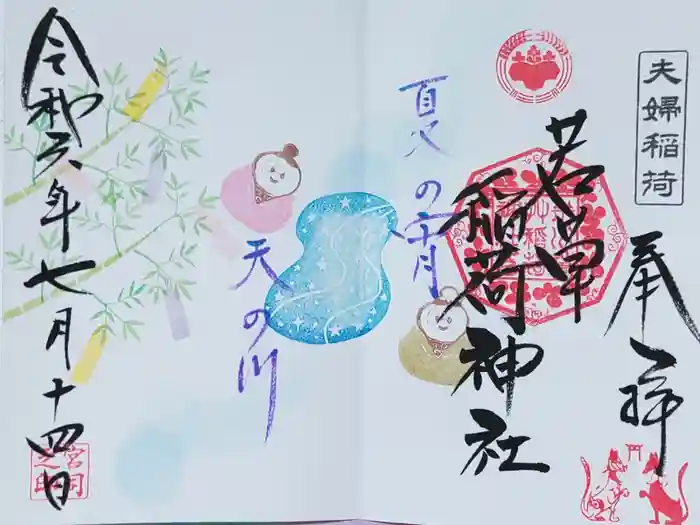 夫婦稲荷
奉拝
若草
稲荷神社
夏の宵
天の川
令和六年七月十四日
宮司之印